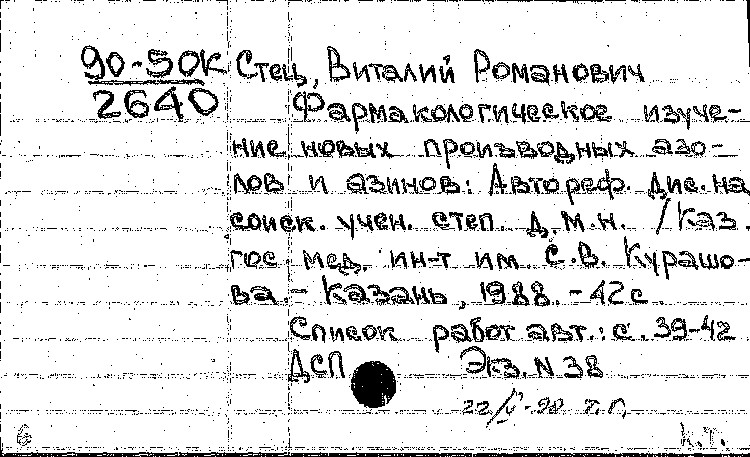 90-50К Стец, Виталий Романович
2640 Фармакологическое изуче-
ние новых производных азо-
лов и азинов: Автореф. дис. на
соиск. учен. степ. д.м.н. / Каз.
гос. мед. ин-т им. С.В. Курашо-
ва. - Казань, 1988. - 42 с.
Список работ авт.: с. 39-42
ДСП Экз. N 38
22/V-90 т.г.
6 к.т.